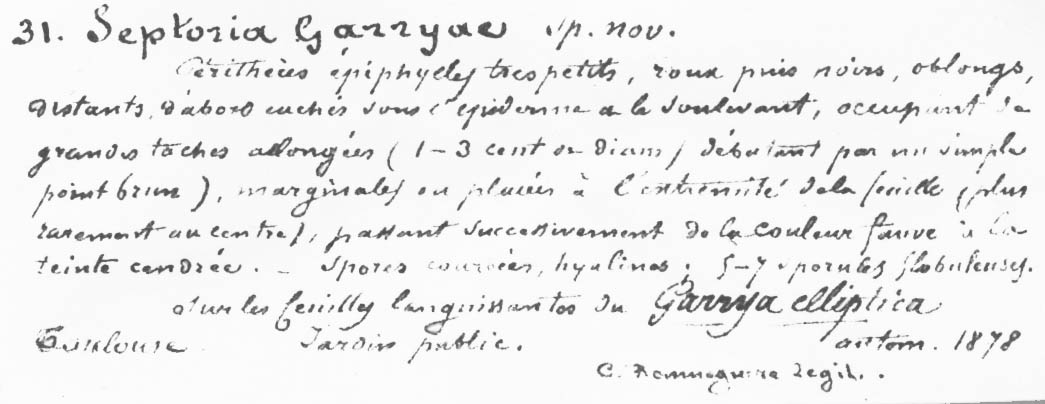 31. Septoria Garryae sp. nov.
Périthèces épiphylles très petits, roux puis noirs, oblongs,
distants, d'abord cachés sous l'épiderme & le soulevant, occupant de
grandes taches allongées (1-3 cent de diam) débutant par un simple
point brun), marginales ou placées à l'extremité de la feuille (plus
rarement au centre), passant successivement de la couleur fauve à la
teinte cendrée. - Spores courbées, hyalines; 5-7 sporules globuleuses.
Sur les feuilles languissantes du Garrya elliptica
Toulouse Jardin public. autom. 1878
C. Roumeguère legit.